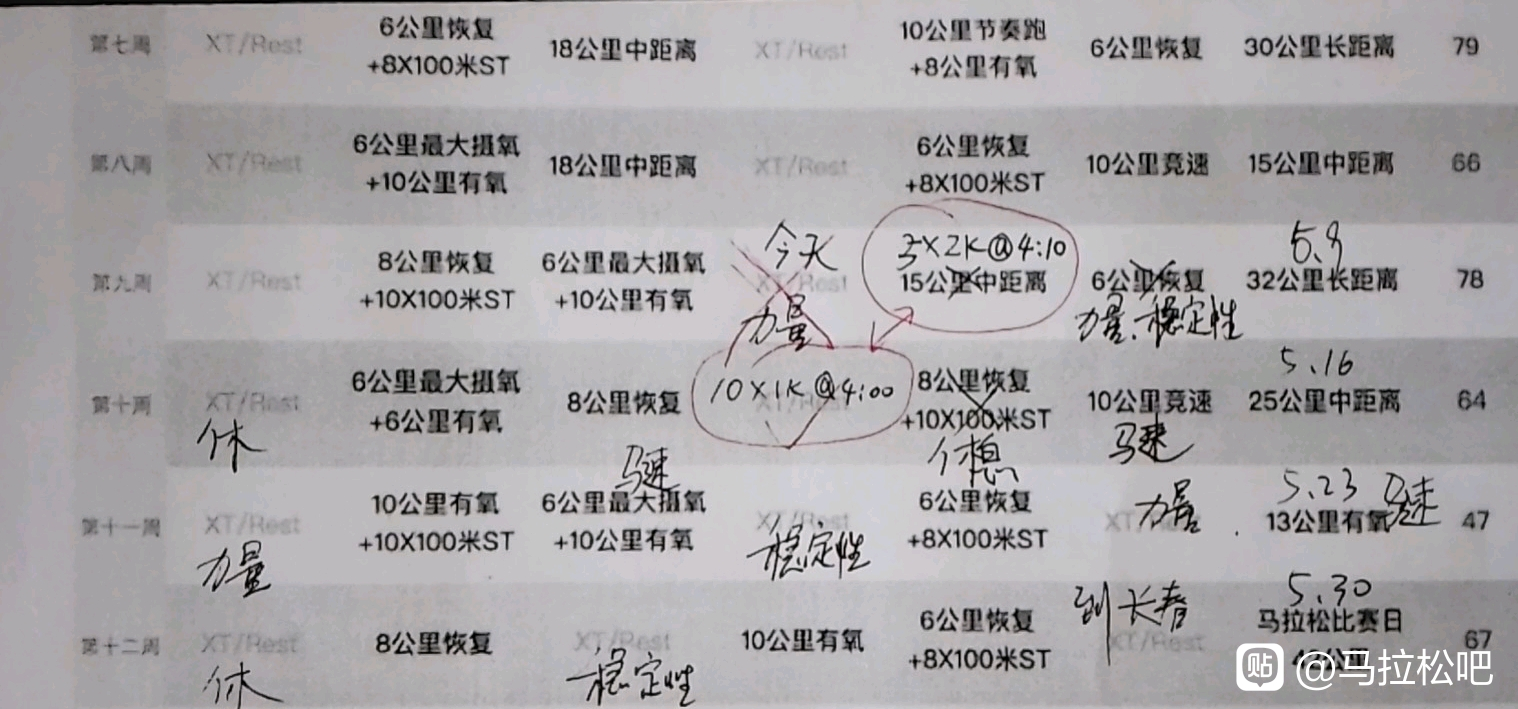 第七周 XT/Rest 6公里恢复 +8X100米ST 18公里中距离 XT/Rest 10公里节奏跑 +8公里有氧 6公里恢复 30公里长距离 79
第八周 XT/Rest 6公里最大摄氧 +10公里有氧 18公里中距离 XT/Rest 6公里恢复 +8X100米ST 10公里竞速 15公里中距离 66
今天 3X2K@4:10 5.9
第九周 XT/Rest 8公里恢复 +10X100米ST 6公里最大摄氧 +10公里有氧 XT/Rest 15公里中距离 6公里恢复 32公里长距离 78
力量 力量、稳定性
10X1K@4:00 5.16
第十周 XT/Rest 6公里最大摄氧 +6公里有氧 8公里恢复 XT/Rest 8公里恢复 +10X100米ST 10公里竞速 25公里中距离 64
休 马速 休息 马速
力量 5.23 马速
第十一周 XT/Rest 10公里有氧 +10X100米ST 6公里最大摄氧 +10公里有氧 XT/Rest 6公里恢复 +8X100米ST XT/Rest 13公里有氧 47
力量 稳定性
到长春 5.30
第十二周 XT/Rest 8公里恢复 XT/Rest 10公里有氧 6公里恢复 +8X100米ST 马拉松比赛日 67
休 稳定性
贴 @马拉松吧